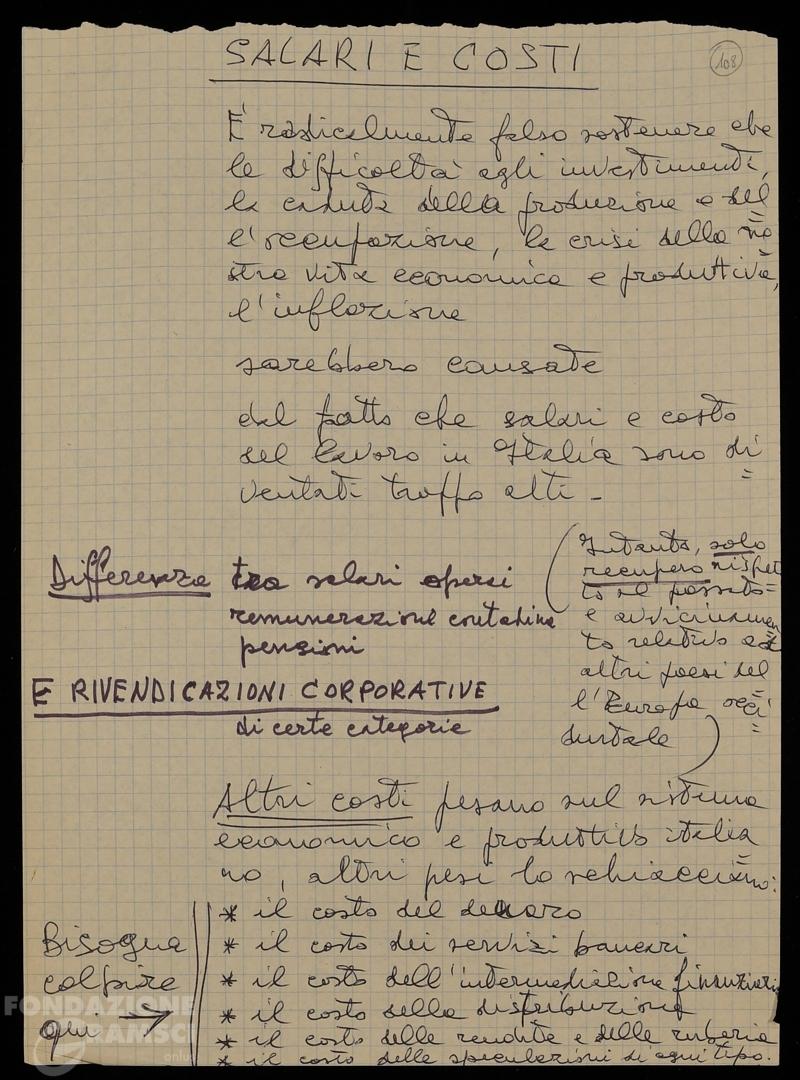 SALARI E COSTI
108
È radicalmente falso sostenere che
le difficoltà agli investimenti,
la caduta della produzione e del
l'occupazione, la crisi della no
stra vita economica e produttiva,
l'inflazione
sarebbero causate
dal fatto che salari e costo
del lavoro in Italia sono di
ventati troppo alti -
(Intanto, solo
recupero rispet
to al passato
e avvicinamen
to relativo ad
altri paesi del
l'Europa occi
dentale)
Differenza tra salari operai
remunerazione contadina
pensioni
E RIVENDICAZIONI CORPORATIVE
di certe categorie
Altri costi pesano sul sistema
economico e produttivo italia
no, altri pesi lo schiacciano:
Bisogna
colpire
qui →
* il costo del denaro
* il costo dei servizi bancari
* il costo dell'intermediazione finanziaria
* il costo della distribuzione
* il costo delle rendite e delle ruberie
* il costo delle speculazioni di ogni tipo.
FONDAZIONE
GRAMSCI
onlus